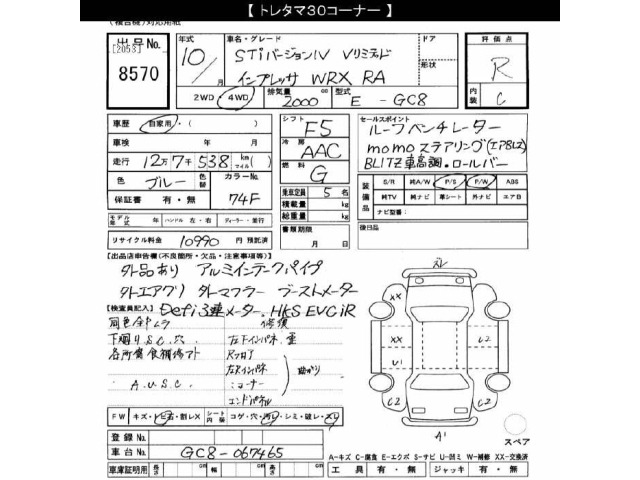 【 トレタマ30コーナー 】
出品No.
[2053]
8570
年式
10/月
車名・グレード
STiバージョンⅣ Vリミテッド
インプレッサ WRX RA
ドア
形状
評価点
R
内装
C
2WD 4WD
排気量
2000 cc
型式
E - GC8
車歴 自家用・( )
車検 年 月
走行 12万7千538 km(マイル)
色 ブルー 色替
カラーNo. 74F
保証書 有・無
モデル年式 年 ハンドル 左・右 ディーラー・並行
リサイクル料金 10990 円 預託済
シフト F5
冷房 AAC
燃料 G
乗車定員 5 名
積載量 kg
総重量 kg
書類期限
月 日
セールスポイント
ルーフベンチレーター
momoステアリング(エアBレス)
BLITZ車高調・ロールバー
装備品
S/R 純A/W P/S P/W ABS
純TV 純ナビ 革シート 外ナビ エアB
ナビ型番:
後日品
[出品店申告欄(不良箇所・欠品・注意事項等)]
外品あり アルミインテークパイプ
外エアクリ 外マフラー ブーストメーター
[検査員記入] Defi3連メーター.HKS EVCiR
同色全塗ムラ 修復
下廻りS.C.穴
各所腐食補修アト
A.U.S.C.
左右インパネ
コーナー
エンドパネル
曲がり
FW キズ・トビ石・割レX
シート内張 コゲ・穴・汚レ・シミ・破レ・スレ
登録No.
車台No. GC8-067465
車庫証明用 長さ cm 幅 cm 高さ cm
スレ
XX
XX
U1
C2
C2
U2
C2
C2
A1
スペア
A-キズ C-腐食 E-エクボ S-サビ U-凹ミ W-補修 XX-交換済
工具 有・無 ジャッキ 有・無